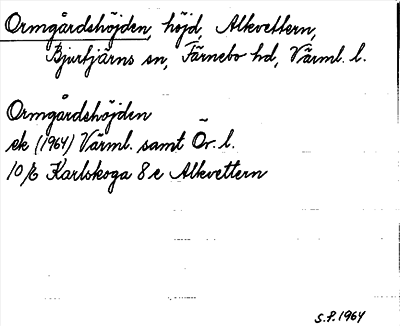 Ormgårdshöjden, höjd, Alkvettern,
Bjurtjärns sn, Färnebo hd, Värml. l.
Ormgårdshöjden
ek (1964) Värml. samt Ör. l.
10/6 Karlskoga 8 e Alkvettern
S.F. 1964